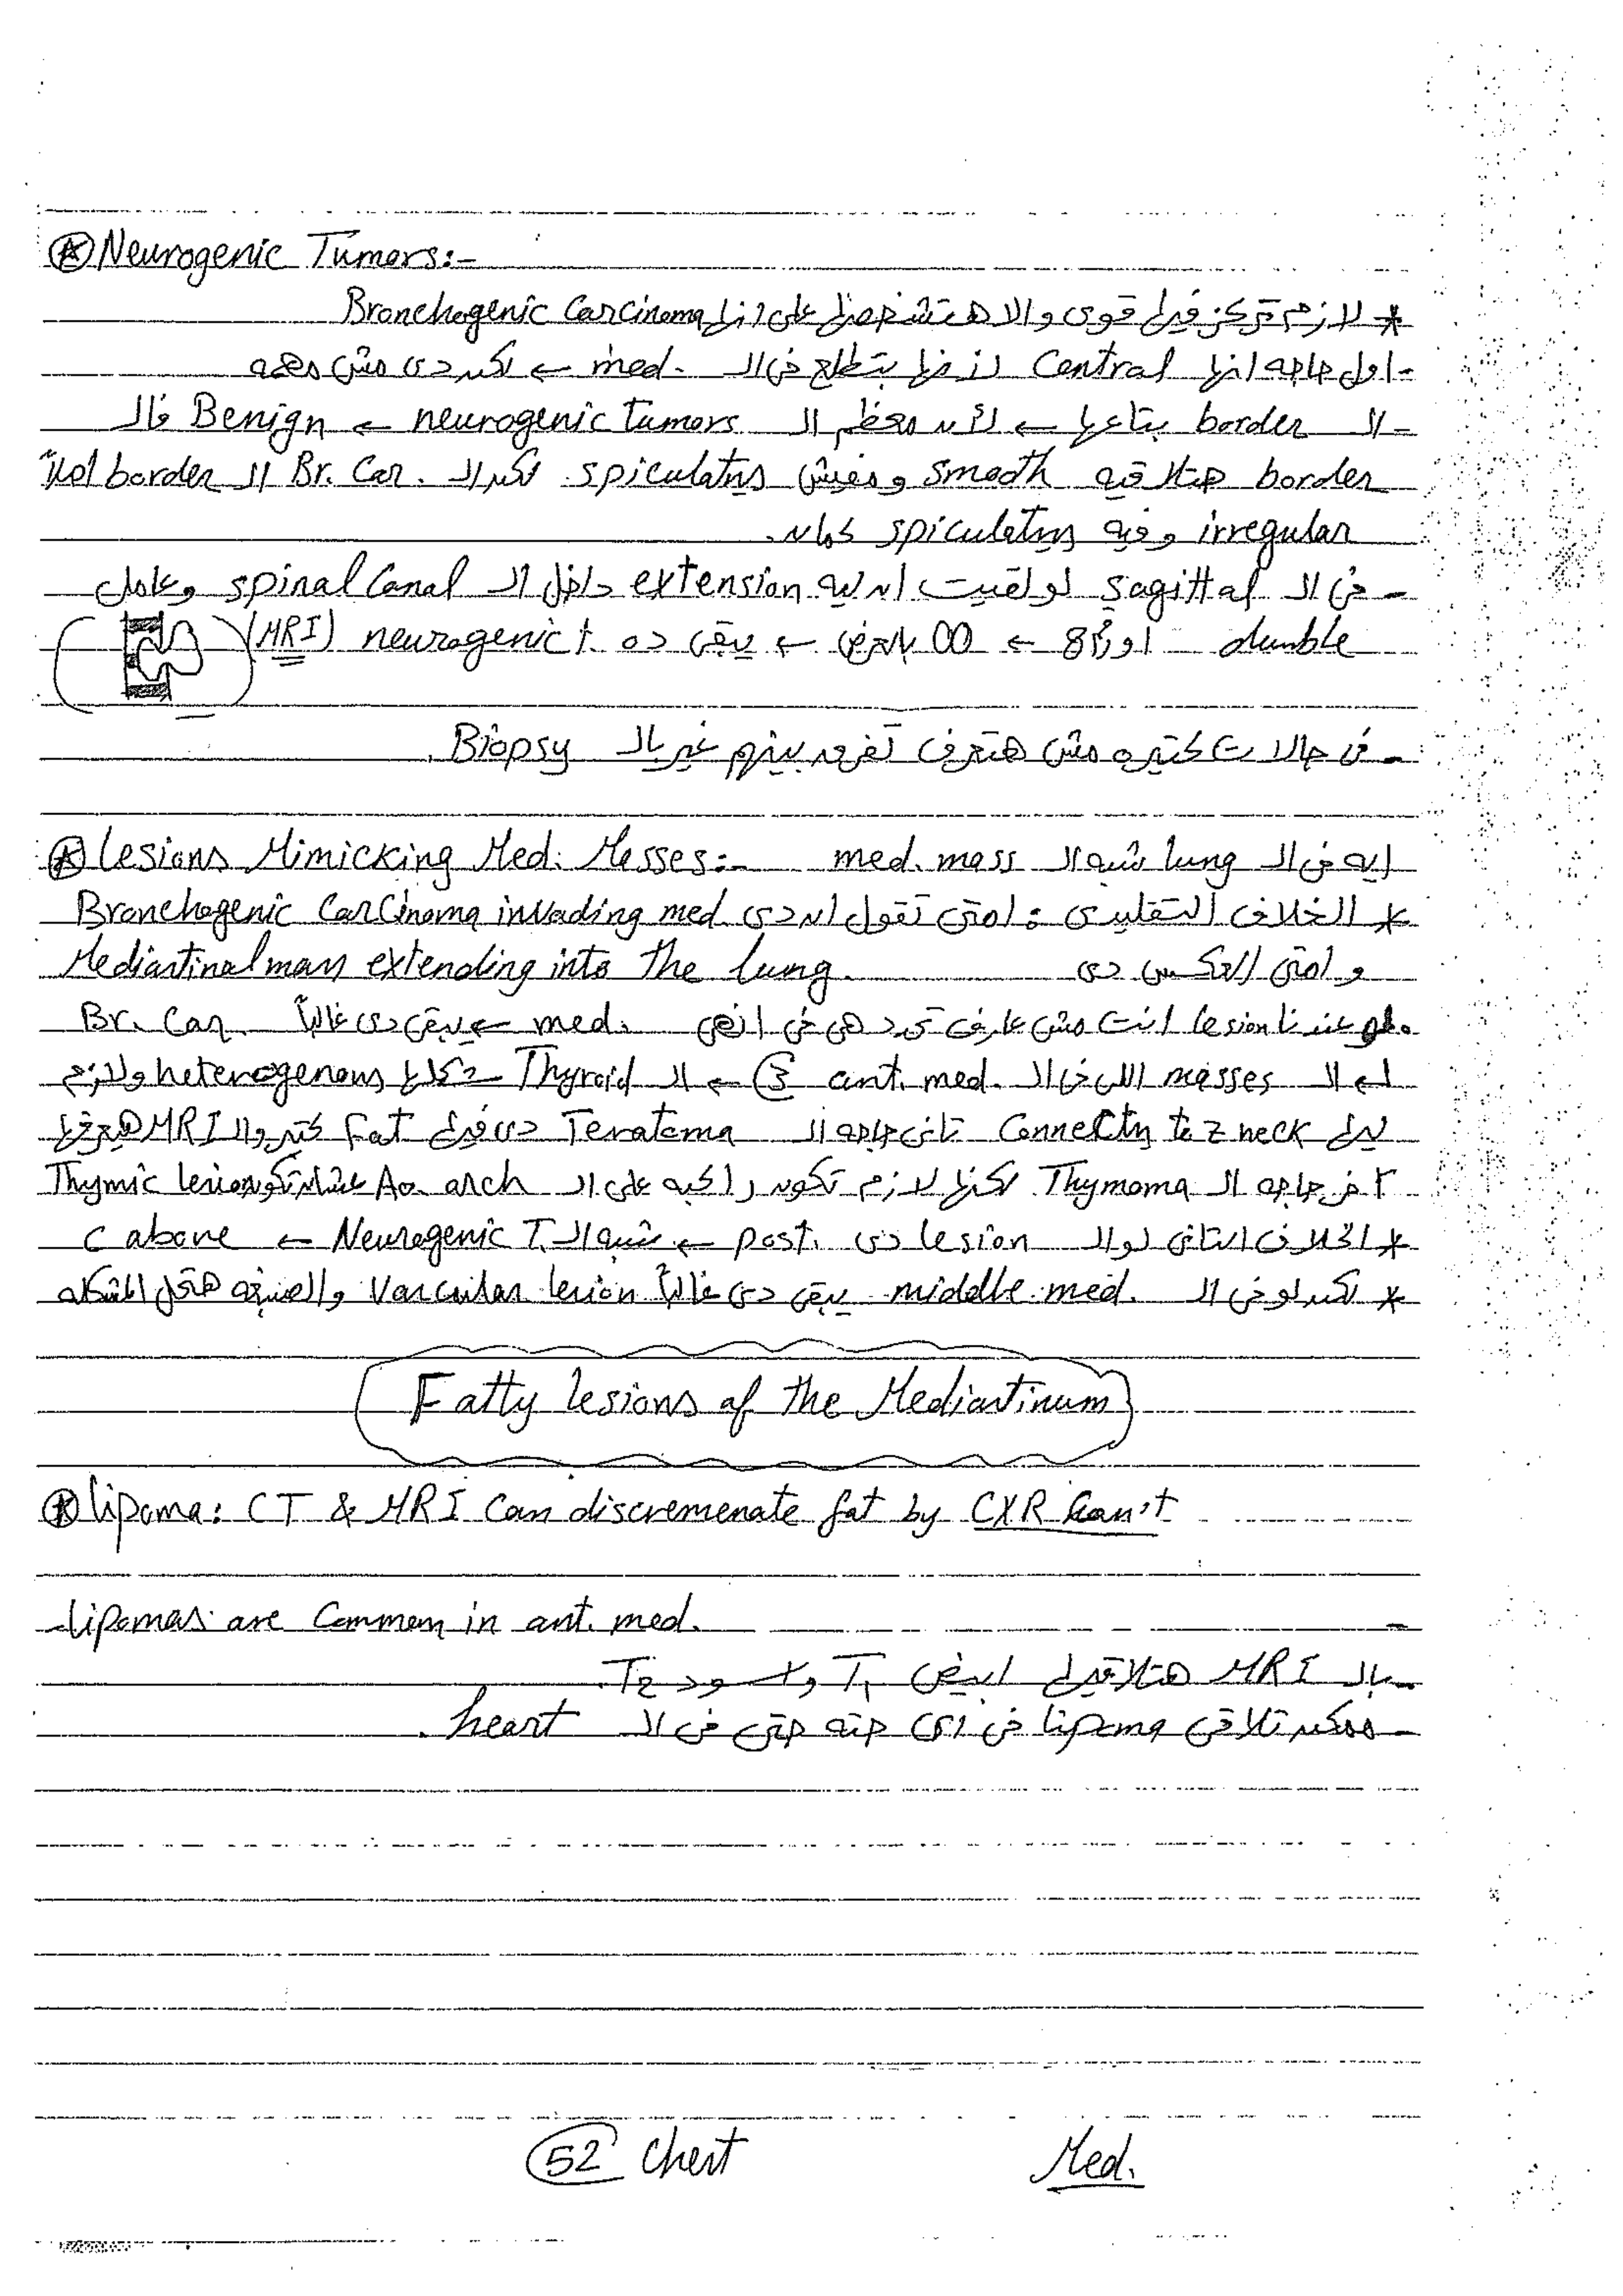 Neurogenic Tumors:-
* لازم تركز فيها قوى والا هتشخصها على انها Bronchogenic Carcinoma
- اول حاجه انها Central لازم بتطلع فى الـ med. ← لكن دى مش مهمه
- الـ border بتاعها ← لأن معظم الـ neurogenic tumors ← Benign فالـ
border هتلاقيه smooth ومفيش spiculations لكن الـ Br. Car. الـ border اصلاً
irregular وفيه spiculations كمان.
- فى الـ sagittal لو لقيت ان ليه extension داخل الـ spinal Canal وعامل
dumble او زى 8 ← 00 بالعرض ← يبقى ده neurogenic t. (MRI)
- فى حالات كتيره مش هتعرف تفرق بينهم غير بالـ Biopsy.
Lesions Mimicking Med. Masses:- ايه فى الـ lung شبه الـ med. mass
* الخلاف التقليدى : امتى تقول ان دى Bronchogenic Carcinoma invading med.
و امتى العكس دى Mediastinal mass extending into the lung.
لو عندنا lesion انت مش عارف ترد هى فى انهى med. ← يبقى دى غالباً Br. Car.
الـ masses اللى فى الـ ant. med. 3 ← الـ Thyroid شكلها heterogenous ولازم
ليها Connectn to z neck تانى حاجه الـ Teratoma دى فيها fat كتير والـ MRI هيعرفها
آخر حاجه الـ Thymoma لكنها لازم تكون راكبه على الـ Ao. arch عشان تكون Thymic lesion
* الخلاف التانى لو الـ lesion دى post. ← شبه الـ Neurogenic T. ← c above
* لكن لو فى الـ middle med. يبقى دى غالباً Vascular lesion والصبغه هتحل المشكله
Fatty lesions of the Mediastinum
lipoma: CT & MRI Can discremenate fat by CXR can't
- lipomas are Common in ant. med.
- بالـ MRI هتلاقيها ابيض T1 واسود T2.
- ممكن تلاقى lipoma فى اى حته حتى فى الـ heart.
52 Chest Med.